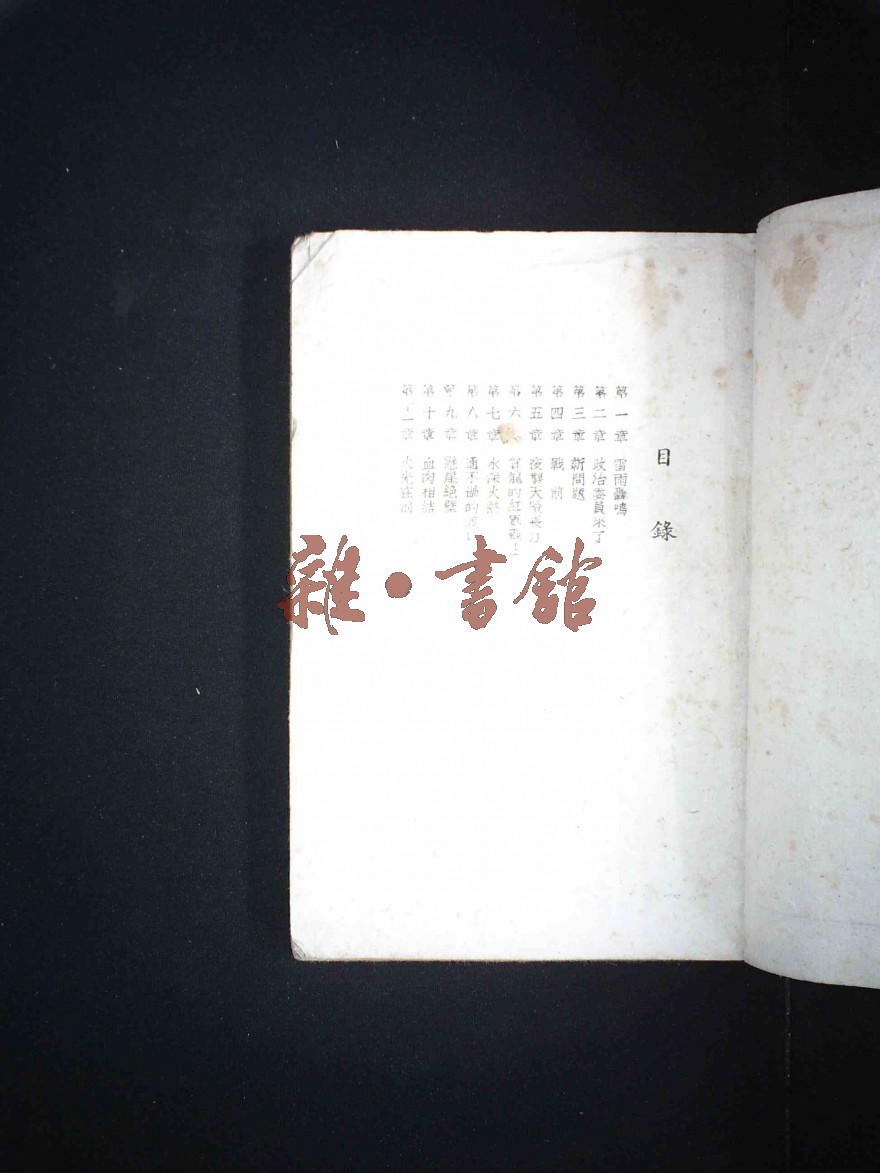 目錄
第一章 雷雨轟鳴
第二章 政治委員來了
第三章 新問題
第四章 戰前
第五章 夜襲天險長江
第六章 的紅
第七章 水深火熱
第八章 通不過的
第九章 懸崖絕壁
第十章 血肉相結
第十一章 火光在前
雜·書館